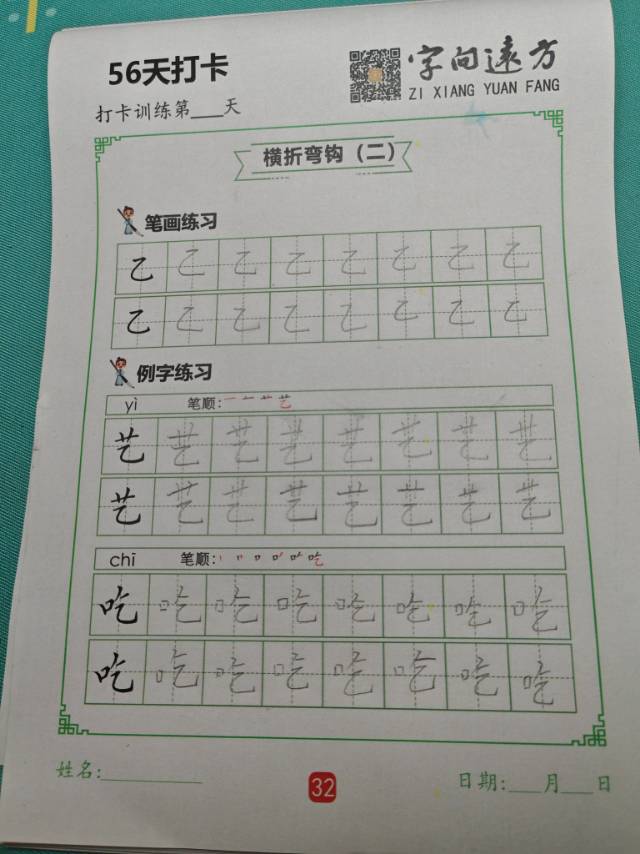 56天打卡
字向远方
ZI XIANG YUAN FANG
打卡训练第___天
横折弯钩（二）
笔画练习
乙 乙 乙 乙 乙 乙 乙 乙
乙 乙 乙 乙 乙 乙 乙 乙
例字练习
yì 笔顺：一 艹 艺
艺 艺 艺 艺 艺 艺 艺 艺
艺 艺 艺 艺 艺 艺 艺 艺
chī 笔顺：丨 口 吃
吃 吃 吃 吃 吃 吃 吃 吃
吃 吃 吃 吃 吃 吃 吃 吃
姓名:___________
32
日期:___月___日